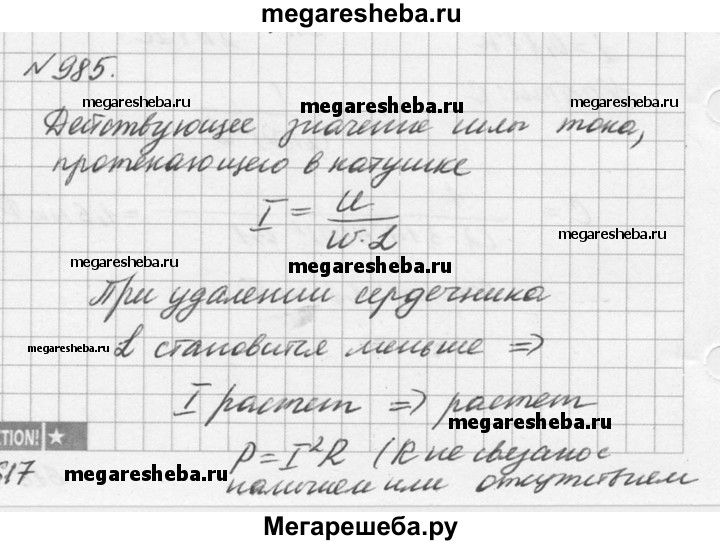 megaresheba.ru
N 985.
megaresheba.ru
megaresheba.ru
megaresheba.ru
Действующее значение силы тока,
протекающего в катушке
I = U / W·L
megaresheba.ru
megaresheba.ru
megaresheba.ru
При удалении сердечника
megaresheba.ru
L становится меньше =>
I растет => растет
megaresheba.ru
TION! ★
P = I²R (R не связано с
617
наличием или отсутствием
Мегарешеба.ру